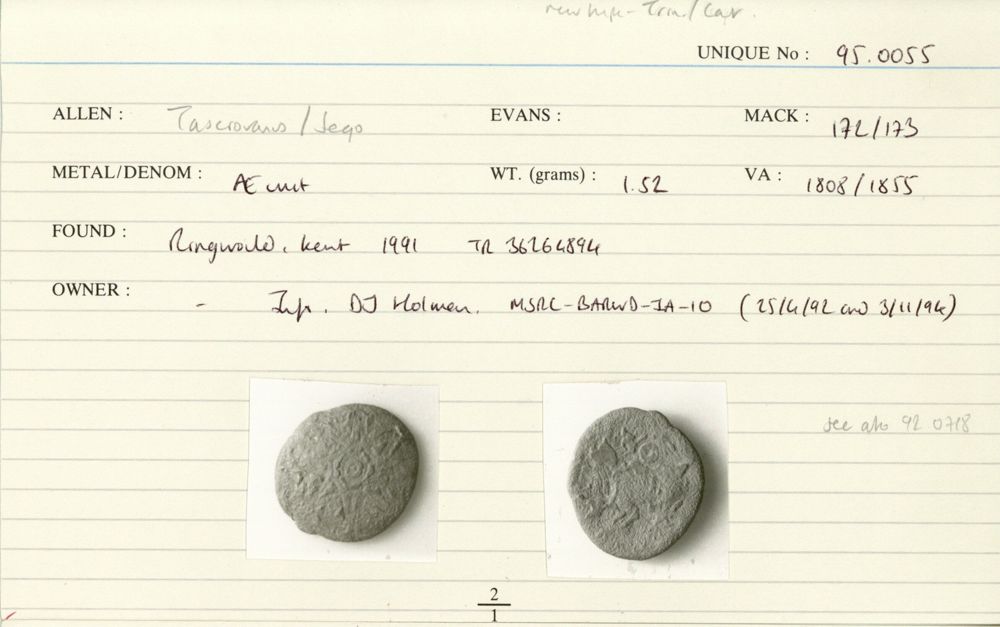 new type - Trin./Cat.
UNIQUE No : 95.0055
ALLEN : Tasciovanus / Sego EVANS : MACK : 172/173
METAL/DENOM : Æ unit WT. (grams) : 1.52 VA : 1808/1855
FOUND : Ringwould, Kent 1991 TR 36264894
OWNER : - Inf. DJ Holman. MSRC-BARWD-IA-10 (25/4/92 and 3/11/94)
see also 92 0718
2
1